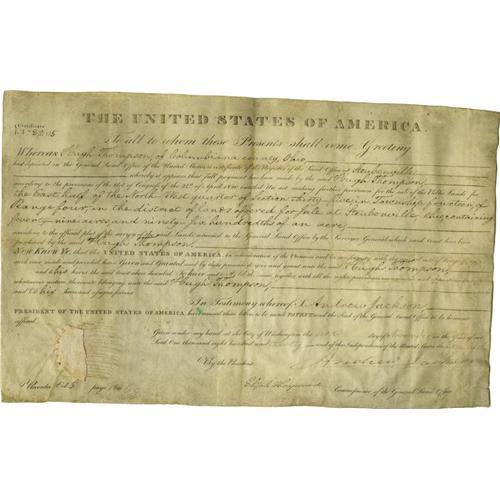 Certificate
THE UNITED STATES OF AMERICA.
To all to whom these Presents shall come, Greeting
Whereas Hugh Thompson, of Columbiana county, Ohio,
has deposited in the General Land Office of the United States, a certificate of the Register of the Land Office at Steubenville
whereby it appears that full payment has been made by the said Hugh Thompson
according to the provisions of the Act of Congress of the 24th of April 1820, entitled "An act making further provision for the sale of the Public Lands" for
the East half of the North West quarter of Section thirty five, in Township fourteen, of
Range four, in the district of lands offered for sale at Steubenville Ohio, containing
seventy nine acres, and ninety six hundredths of an acre,
according to the official plat of the survey of the said Lands, returned to the General Land Office by the Surveyor General, which said tract has been
purchased by the said Hugh Thompson,
NOW KNOW YE, that the UNITED STATES OF AMERICA, in consideration of the Premises and in conformity with the several acts
have given and granted and by these presents do give and grant unto the said Hugh Thompson,
and to his heirs, the said tract above described: To have and to hold the same, together with all the rights
whatsoever nature thereunto belonging unto the said Hugh Thompson,
and to his heirs and assigns forever.
In Testimony whereof I, Andrew Jackson,
PRESIDENT OF THE UNITED STATES OF AMERICA, have caused these Letters to be made PATENT and the Seal of the General Land Office to be hereunto
affixed.
Given under my hand at the City of Washington the day of in the year of our
Lord one thousand eight hundred and thirty and of the Independence of the United States the
By the President: Andrew Jackson
Elijah Hayward Commissioner of the General Land Office
Recorded Vol page